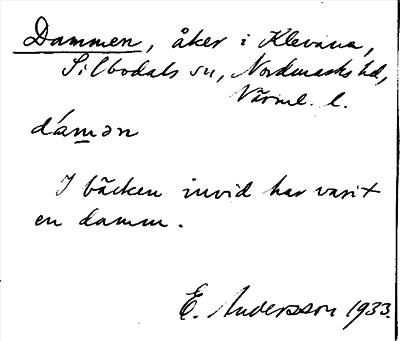 Dammen, åker i Klevana,
Silbodals sn, Nordmarks hd,
Värml. l.
dámən
I bäcken invid har varit
en damm.
E. Andersson 1933.